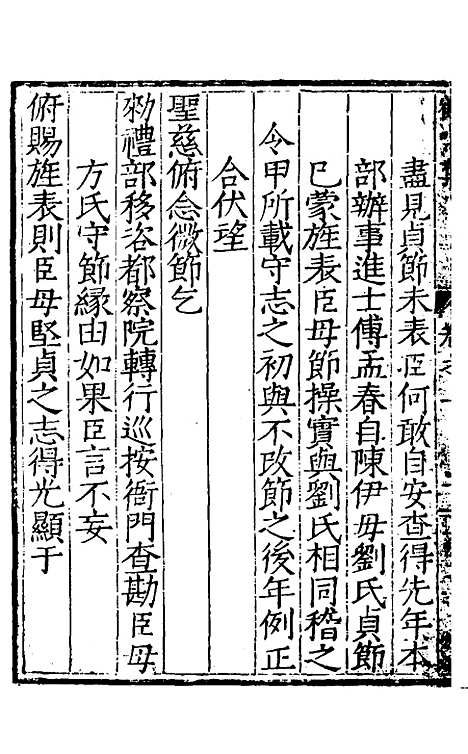 盡見貞節未表臣何敢自安查得先年本
部辦事進士傅孟春自陳伊母劉氏貞節
已蒙旌表臣母節操實與劉氏相同稽之
令甲所載守志之初與不改節之後年例正
合伏望
聖慈俯念微節乞
勑禮部移咨都察院轉行巡按衙門查勘臣母
方氏守節緣由如果臣言不妄
俯賜旌表則臣母堅貞之志得光顯于